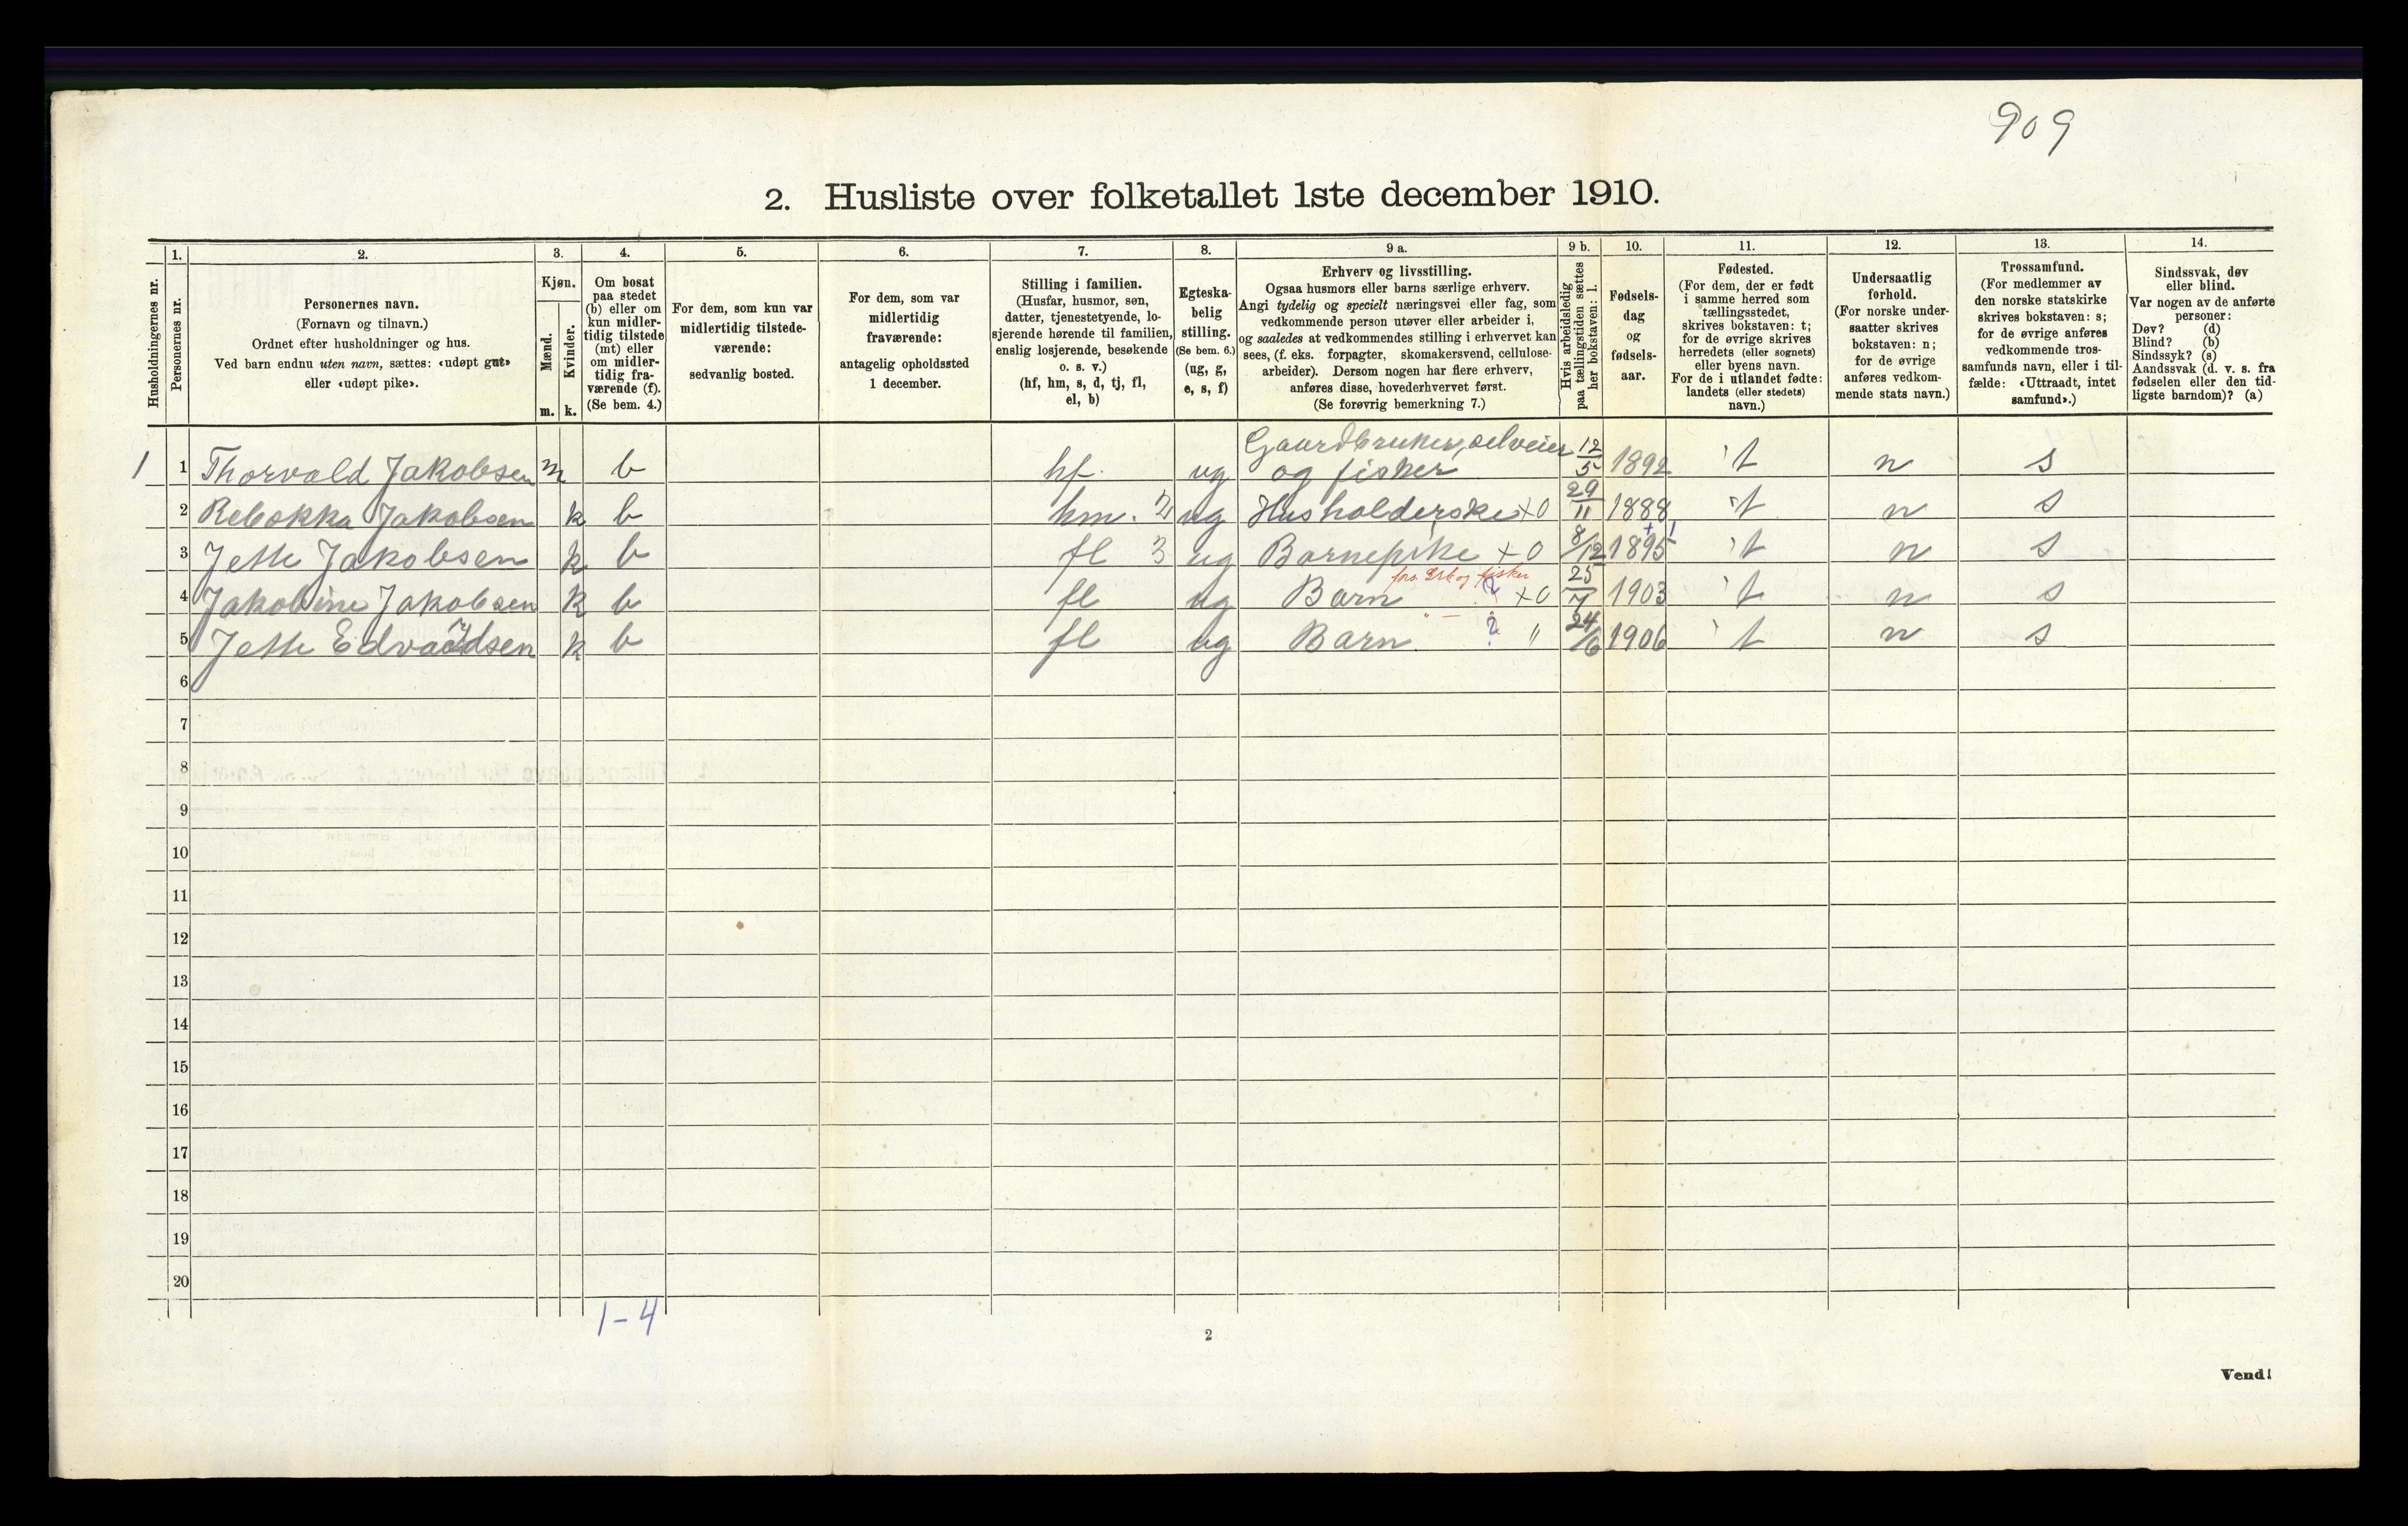 909
2. Husliste over folketallet 1ste december 1910.
Husholdningernes nr.
1.
Personernes nr.
2.
Personernes navn.
(Fornavn og tilnavn.)
Ordnet efter husholdninger og hus.
Ved barn endnu uten navn, sættes: «udøpt gut»
eller «udøpt pike».
3.
Kjøn.
Mænd.
Kvinder.
m. k.
4.
Om bosat
paa stedet
(b) eller om
kun midler-
tidig tilstede
(mt) eller
om midler-
tidig fra-
værende (f).
(Se bem. 4.)
5.
For dem, som kun var
midlertidig tilstede-
værende:
sedvanlig bosted.
6.
For dem, som var
midlertidig
fraværende:
antagelig opholdssted
1 december.
7.
Stilling i familien.
(Husfar, husmor, søn,
datter, tjenestetyende, lo-
sjerende hørende til familien,
enslig losjerende, besøkende
o. s. v.)
(hf, hm, s, d, tj, fl,
el, b)
8.
Egteska-
belig
stilling.
(Se bem. 6.)
(ug, g,
e, s, f)
9 a.
Erhverv og livsstilling.
Ogsaa husmors eller barns særlige erhverv.
Angi tydelig og specielt næringsvei eller fag, som
vedkommende person utøver eller arbeider i,
og saaledes at vedkommendes stilling i erhvervet kan
sees, (f. eks. forpagter, skomakersvend, cellulose-
arbeider). Dersom nogen har flere erhverv,
anføres disse, hovederhvervet først.
(Se forøvrig bemerkning 7.)
9 b.
Hvis arbeidsledig
paa tællingstiden sættes
her bokstaven: l.
10.
Fødsels-
dag
og
fødsels-
aar.
11.
Fødested.
(For dem, der er født
i samme herred som
tællingsstedet,
skrives bokstaven: t;
for de øvrige skrives
herredets (eller sognets)
eller byens navn.
For de i utlandet fødte:
landets (eller stedets)
navn.)
12.
Undersaatlig
forhold.
(For norske under-
saatter skrives
bokstaven: n;
for de øvrige
anføres vedkom-
mende stats navn.)
13.
Trossamfund.
(For medlemmer av
den norske statskirke
skrives bokstaven: s;
for de øvrige anføres
vedkommende tros-
samfunds navn, eller i til-
fælde: «Uttraadt, intet
samfund».)
14.
Sindssvak, døv
eller blind.
Var nogen av de anførte
personer:
Døv? (d)
Blind? (b)
Sindssyk? (s)
Aandssvak (d. v. s. fra
fødselen eller den tid-
ligste barndom)? (a)
1 1 Thorvald Jakobsen m b hf. ug Gaardbruker, selveier og fisker 12/5 1892 t n s
2 Rebekka Jakobsen k b hm. 2 ug Husholderske x0 29/11 1888 t n s
3 Jette Jakobsen k b fl 3 ug Barnepike x0 8/12 1895 t n s
fors. Grb og fisker
4 Jakobine Jakobsen k b fl ug Barn 2 x0 25/7 1903 t n s
5 Jette Edvardsen k b fl ug Barn " — 2 " 24/6 1906 t n s
6
7
8
9
10
11
12
13
14
15
16
17
18
19
20
1-4
2
Vend!